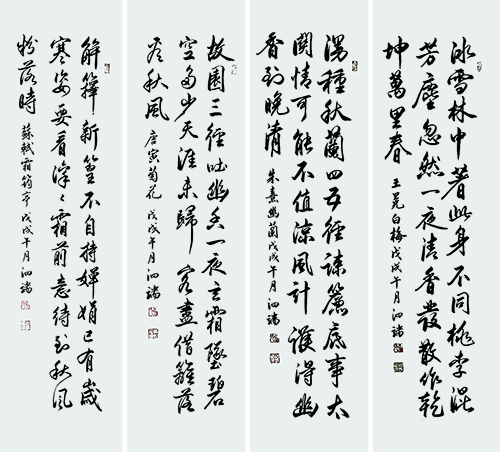 冰雪林中著此身不同桃李混
芳塵忽然一夜清香發散作乾
坤萬里春
王冕白梅戊戌午月泗端
漫種秋蘭四五徑疎簾底事太
關情可能不值涼風計護得幽
香到晚清
朱熹幽蘭戊戌午月泗端
故園三徑吐幽叢一夜玄霜墜碧
空多少天涯未歸客盡借籬落
看秋風
唐寅菊花戊戌午月泗端
解籜新篁不自持嬋娟已有歲
寒姿要看凜々霜前意待到秋風
粉落時
蘇軾霜筠亭戊戌午月泗端